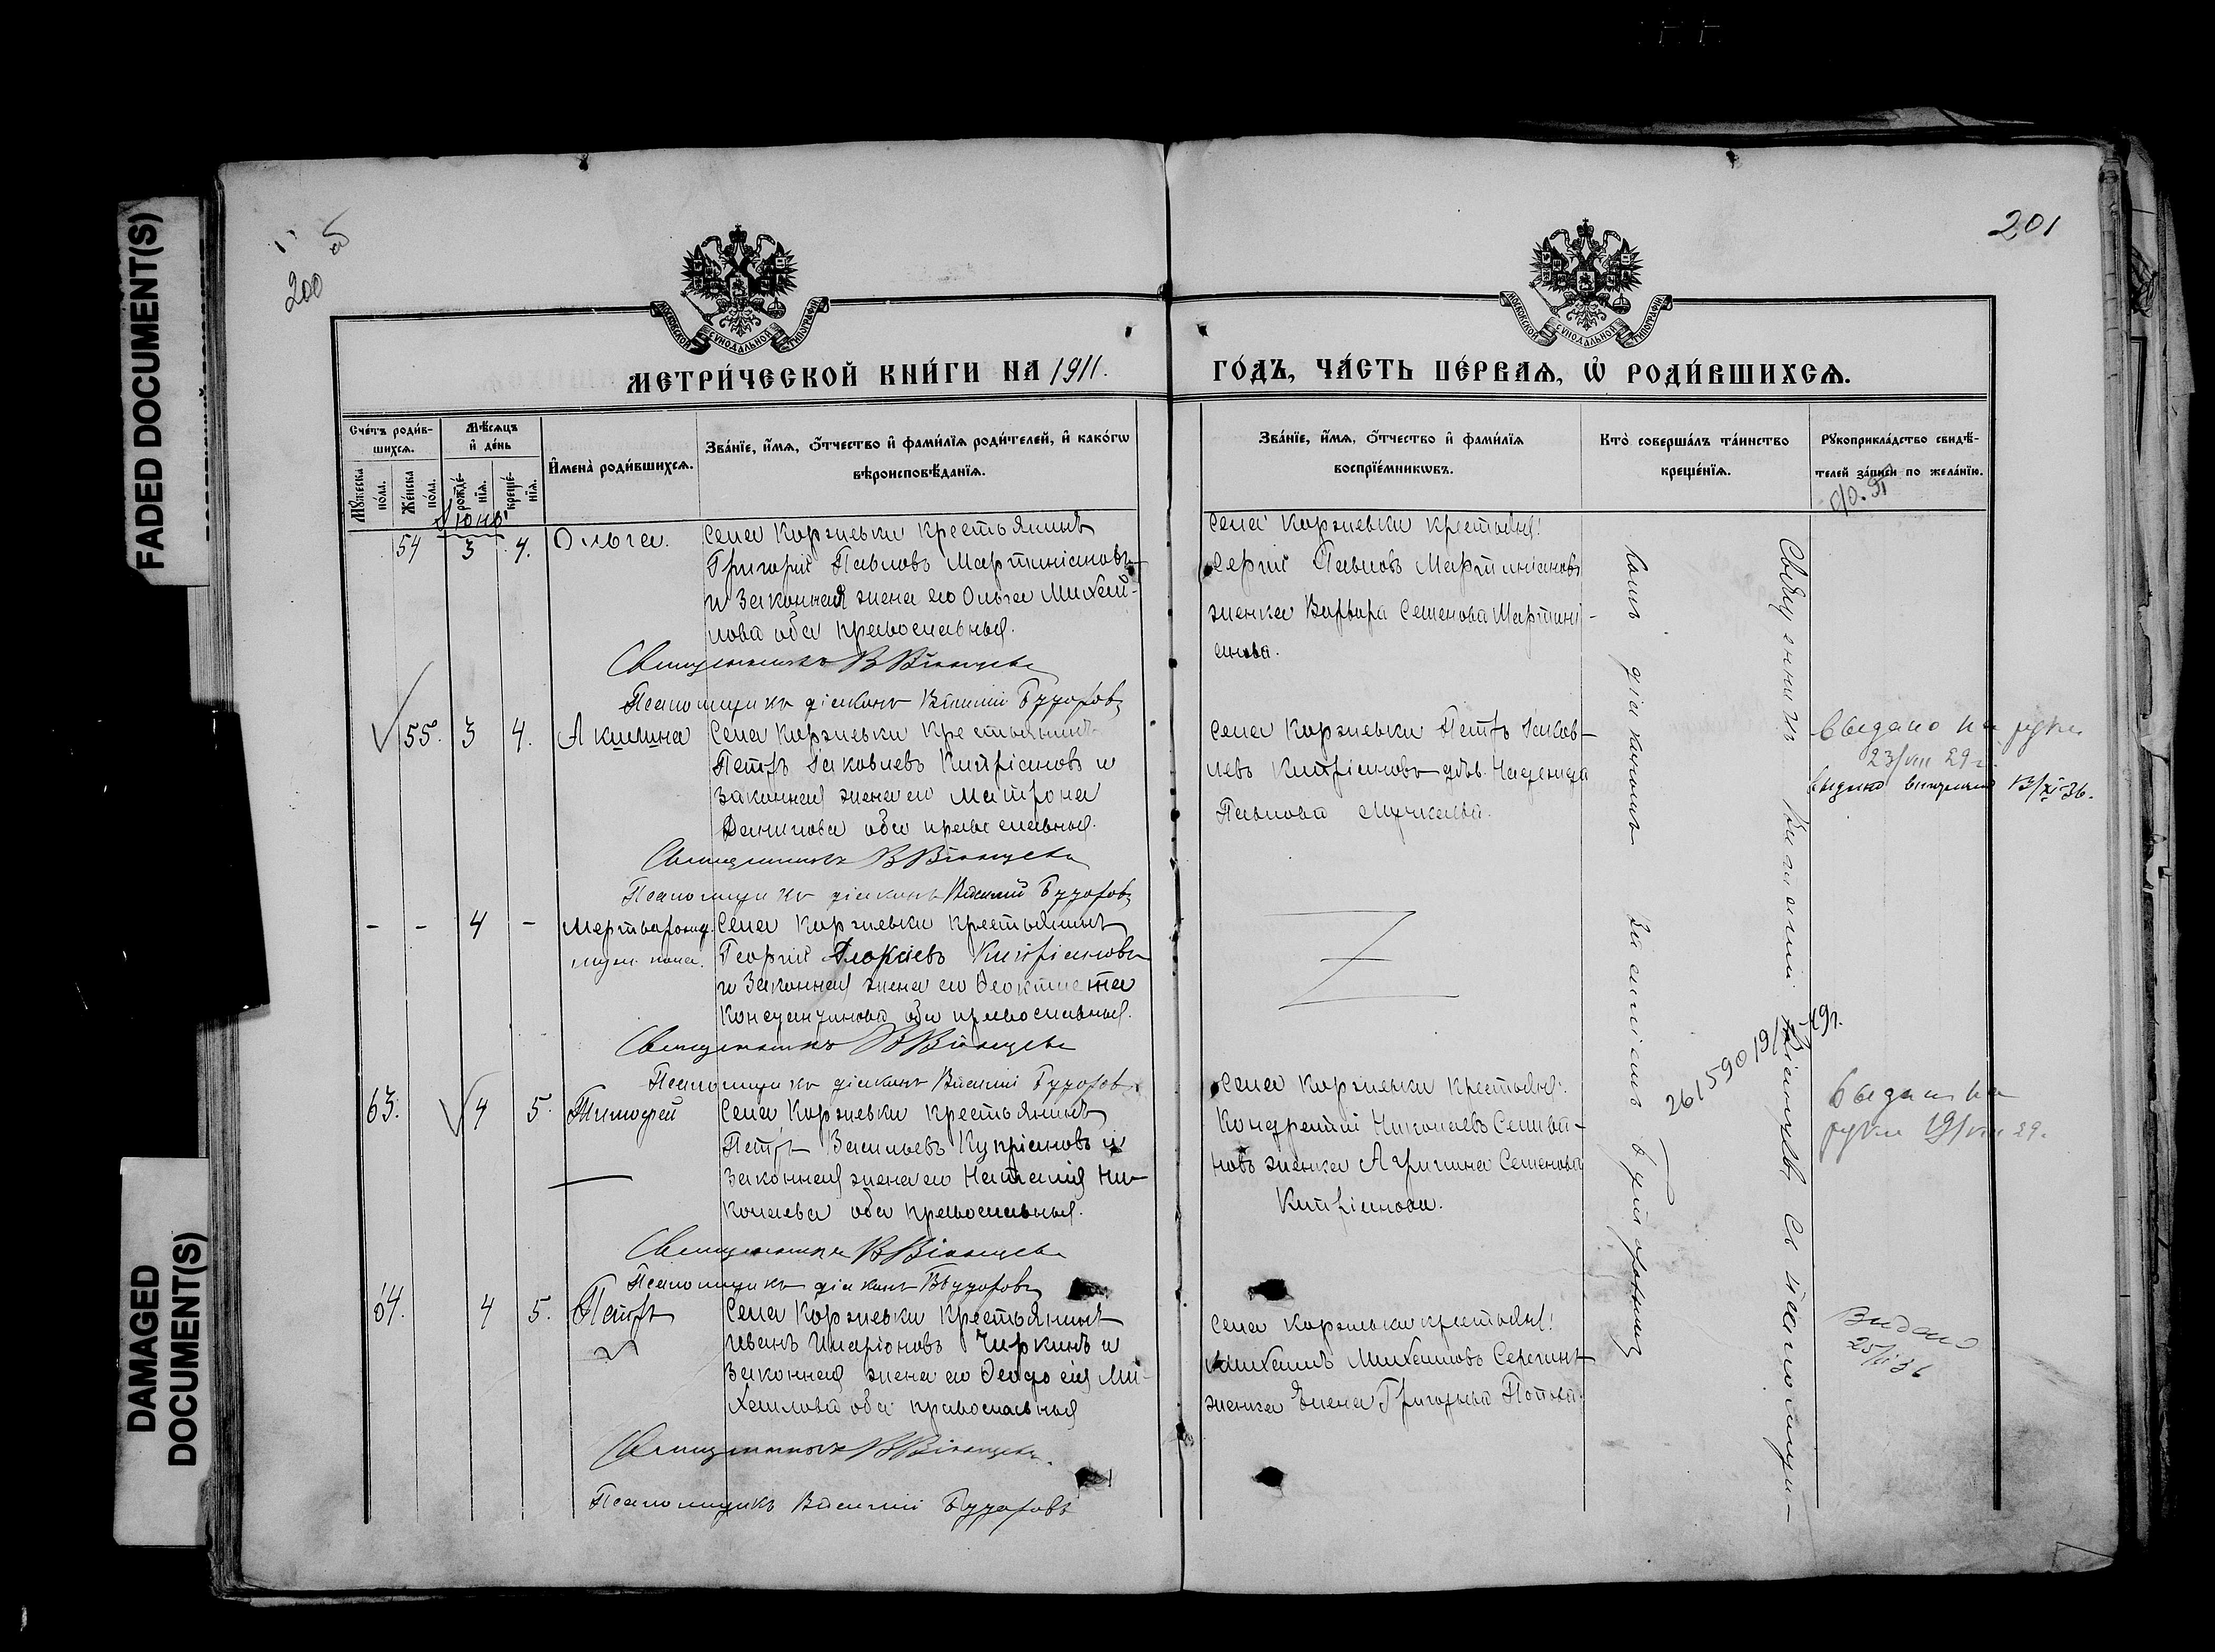 FADED DOCUMENT(S)
DAMAGED
DOCUMENT(S)
200
201
МОСКОВСКОЙ СѴНОДАЛЬНОЙ ТИПОГРАФІИ
МОСКОВСКОЙ СѴНОДАЛЬНОЙ ТИПОГРАФІИ
МЕТРИ́ЧЕСКОЙ КНИ́ГИ НА 1911.
ГО́ДЪ, ЧА́СТЬ ПЕ́РВАѦ, Ѡ҆ РОДИ́ВШИХСѦ.
Сче́тъ роди́в-
шихсѧ.
Мꙋ́жеска
по́ла.
Же́нска
по́ла.
Мѣ́сѧцъ
и҆ де́нь
рожде́-
нїѧ.
креще́-
нїѧ.
И҆мена̀ роди́вшихсѧ.
Зва́нїе, и҆́мѧ, ѻ҆́тчество и҆ фами́лїѧ роди́телей, и҆ како́гѡ
вѣроисповѣ́данїѧ.
Зва́нїе, и҆́мѧ, ѻ҆́тчество и҆ фами́лїѧ
воспрїе́мникѡвъ.
Кто̀ соверша́лъ та́инство
креще́нїѧ.
Рꙋкоприкла́дство свидѣ́-
телей за́писи по жела́нїю.
54 3 4. Ольга. Села Коржевки крестьянинъ
Григорій Павловъ Мартиніановъ
и законная жена его Ольга Михай-
лова оба православныя.
Священникъ В Віанцевъ
Псаломщикъ діаконъ Василій Будоровъ
села Коржевки крестьян:
Сергій Павловъ Мартиніановъ
женка Варвара Семенова Мартині-
анова.
55. 3 4. Акилина Села Коржевки крестьянинъ
Петръ Іаковлевъ Кипріановъ и
законная жена его Матрона
Данилова оба православныя.
Священникъ В Віанцевъ
Псаломщикъ діаконъ Василій Будоровъ
села Коржевки Петръ Іаков-
левъ Кипріановъ дѣв. Надежда
Павлова
выдано на руки
23/VIII 29 г
- - 4 - Мертворожд. Села Коржевки крестьянинъ
муж. пола. Георгій Кипріановъ
и законная жена его Феоктиста
Константинова оба православныя.
Священникъ В Віанцевъ
Псаломщикъ діаконъ Василій Будоровъ
63. 4 5. Тимофей Села Коржевки крестьянинъ
Петръ Васильевъ Купріановъ и
законная жена его Наталія Ни-
колаева оба православныя.
Священникъ В Віанцевъ
Псаломщикъ діаконъ В Будоровъ
села Коржевки крестьян:
Кондратій Николаевъ Селива-
новъ женка Агрипина Семенова
Кипріанова.
выдан на
руки 19/VIII 29.
64. 4 5. Петръ Села Коржевки крестьянинъ
Иванъ Иларіоновъ Чиркинъ и
законная жена его Феодосія Ми-
хаилова оба православныя
Священникъ В Віанцевъ.
Псаломщикъ Василій Будоровъ
села Коржевки крестьян:
Михаилъ Михаиловъ Серегинъ
женка Елена Григорьева Попова
Видано
Священникъ Василій Віанцевъ съ псаломщи-
комъ діакономъ Василіемъ Будоровымъ